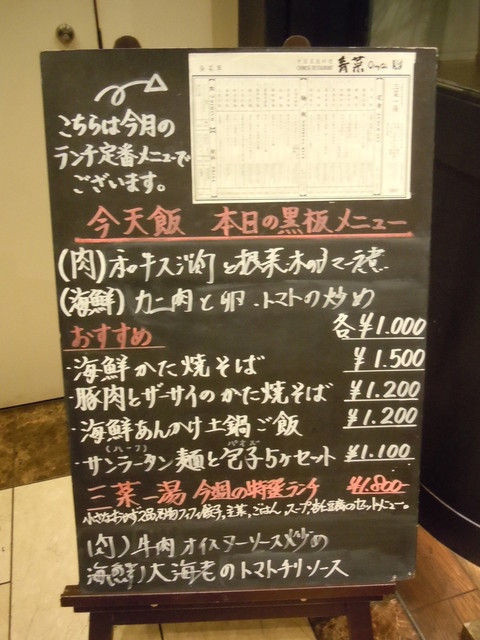 青菜
こちらは今月の
ランチ定番メニューで
ございます。
今天飯 本日の黒板メニュー
(肉) 和牛スジ肉と根菜の煮
(海鮮) カニ肉と卵、トマトの炒め
各¥1.000
おすすめ
・海鮮かた焼そば ¥1.500
豚肉とザーサイのかた焼そば ¥1.200
・海鮮あんかけ土鍋ご飯 ¥1.200
(ハーフ) パオズ
・サンラータン麺と包子5ヶセット ¥1.100
三菜一湯 今週の特選ランチ ¥1.800
小さなおかず2品、餃子、主菜、ごはん、スープ、杏仁豆腐のセットメニュー。
(肉) 牛肉オイスターソース炒め
海鮮) 大海老のトマトチリソース